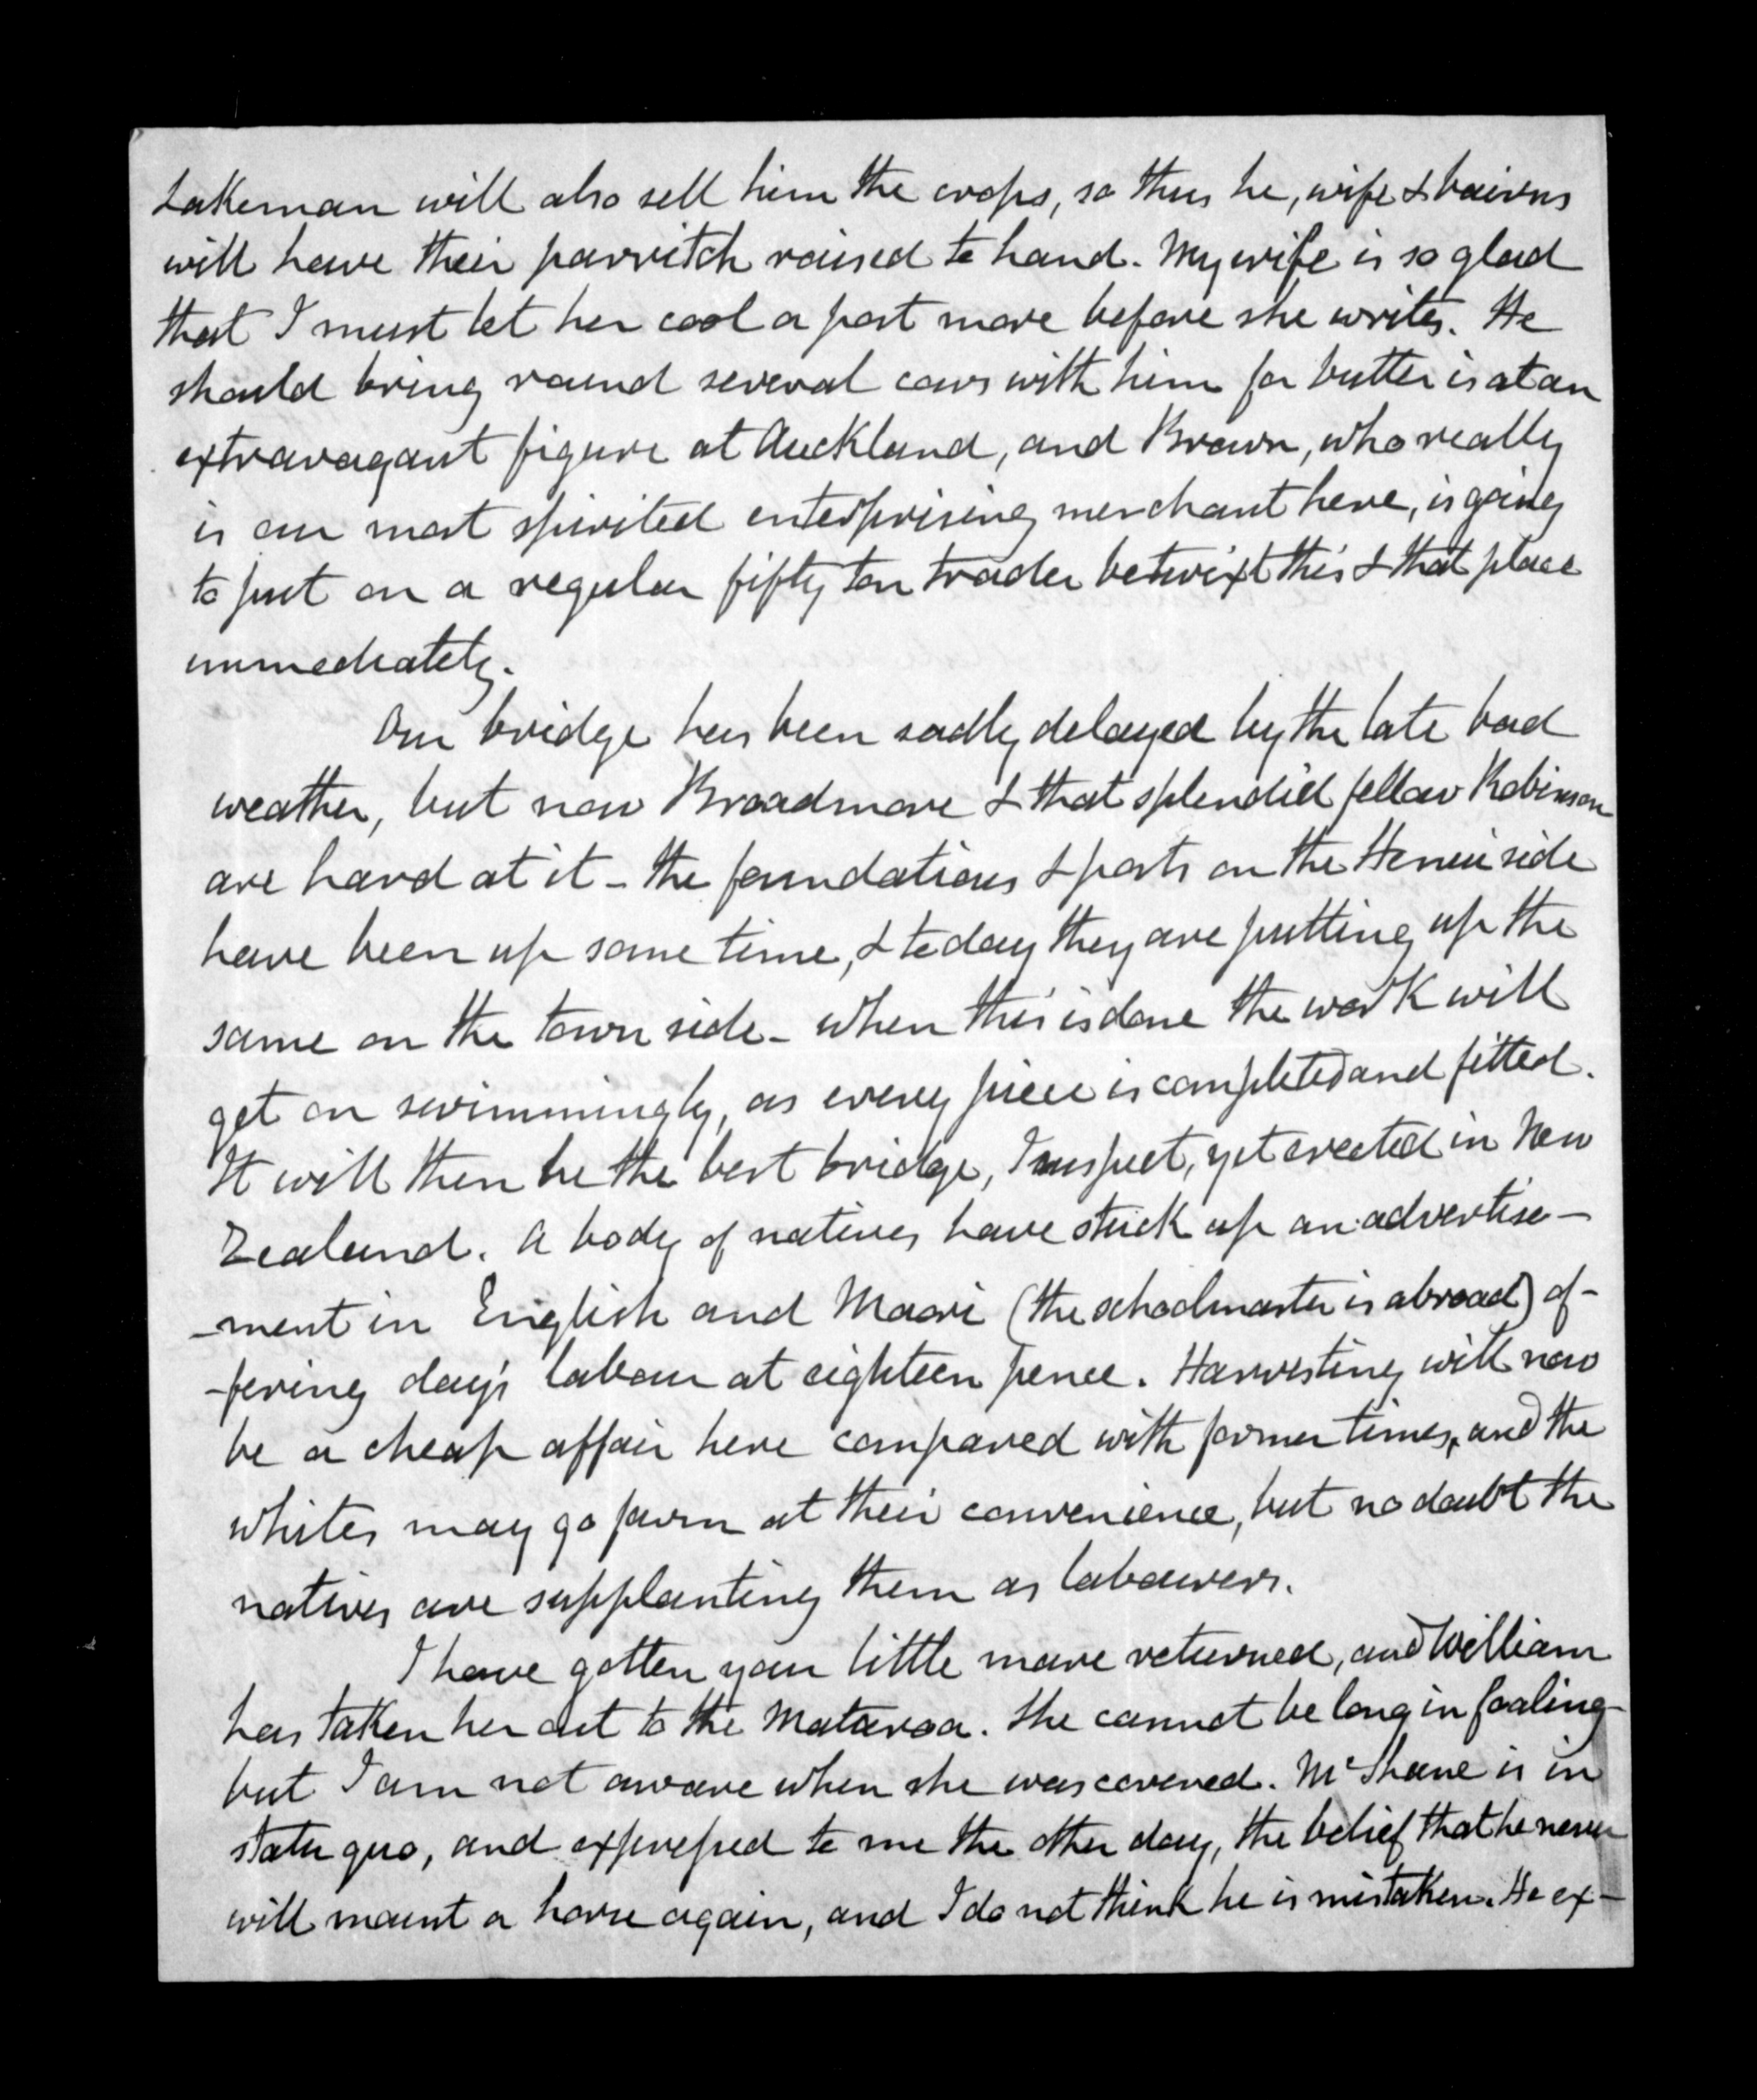 Lakeman will also sell him the crops, so thus he, wife & bairns
will have their parritch raised to hand. My wife is so glad
that I must let her cool a post more before she writes. He
should bring round several cows with him for butter is at an
extravagant figure at Auckland, and Brown, who really
is our most spirited enterprising merchant here, is going
to put on a regular fifty ton trader betwixt this & that place
immediately.
Our bridge has been sadly delayed by the late bad
weather, but now Broadmore & that splendid fellow Robinson
are hard at it - the foundations & posts on the Henui side
have been up some time, & today they are putting up the
same on the town side - when this is done the work will
get on swimmingly, as every piece is completed and fitted.
It will then be the best bridge, I suspect, yet erected in New
Zealand. A body of natives have stuck up an advertise-
-ment in English and Maori (the schoolmaster is abroad) of-
-fering day's labour at eighteen pence. Harvesting will now
be a cheap affair here compared with former times, and the
whites may go farm at their convenience, but no doubt the
natives are supplanting them as labourers.
I have gotten your little mare returned, and William
has taken her out to the Mataroa. She cannot be long in foaling -
but I am not aware when she was covered. McShane is in
statu quo, and expressed to me the other day, the belief that he never
will mount a horse again, and I do not think he is mistaken. He ex-